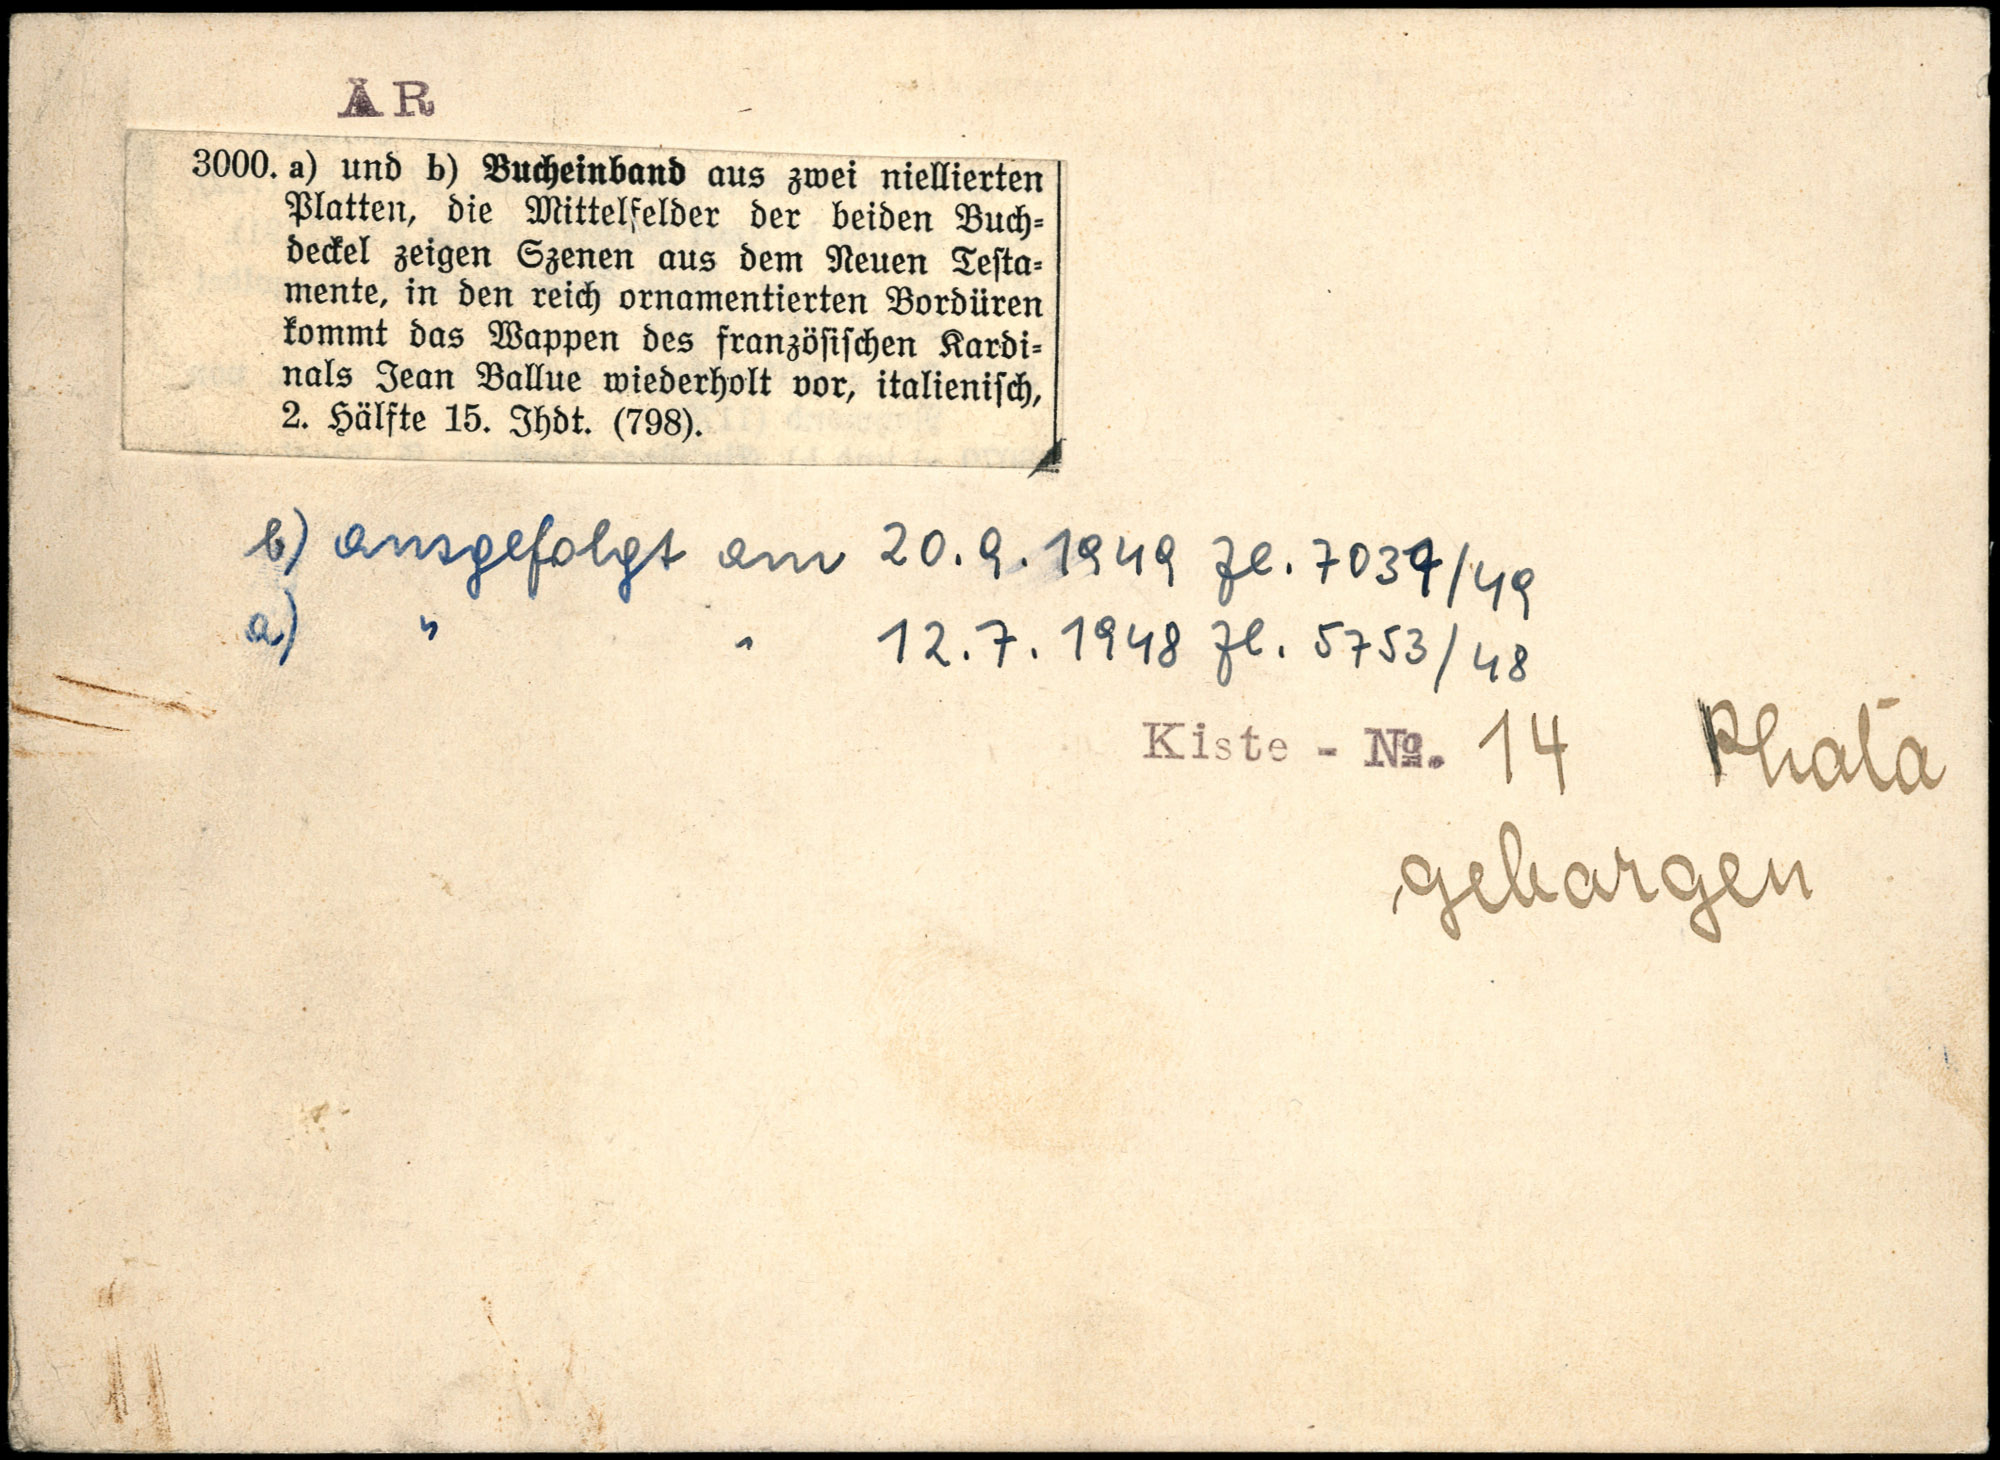 AR
3000. a) und b) Bucheinband aus zwei niellierten
Platten, die Mittelfelder der beiden Buch-
deckel zeigen Szenen aus dem Neuen Testa-
mente, in den reich ornamentierten Bordüren
kommt das Wappen des französischen Kardi-
nals Jean Ballue wiederholt vor, italienisch,
2. Hälfte 15. Jhdt. (798).
b) ausgefolgt am 20.9.1949 Zl. /49
a) " " 12.7.1948 Zl. 5753/48
Kiste - No. 14 Photo
geborgen